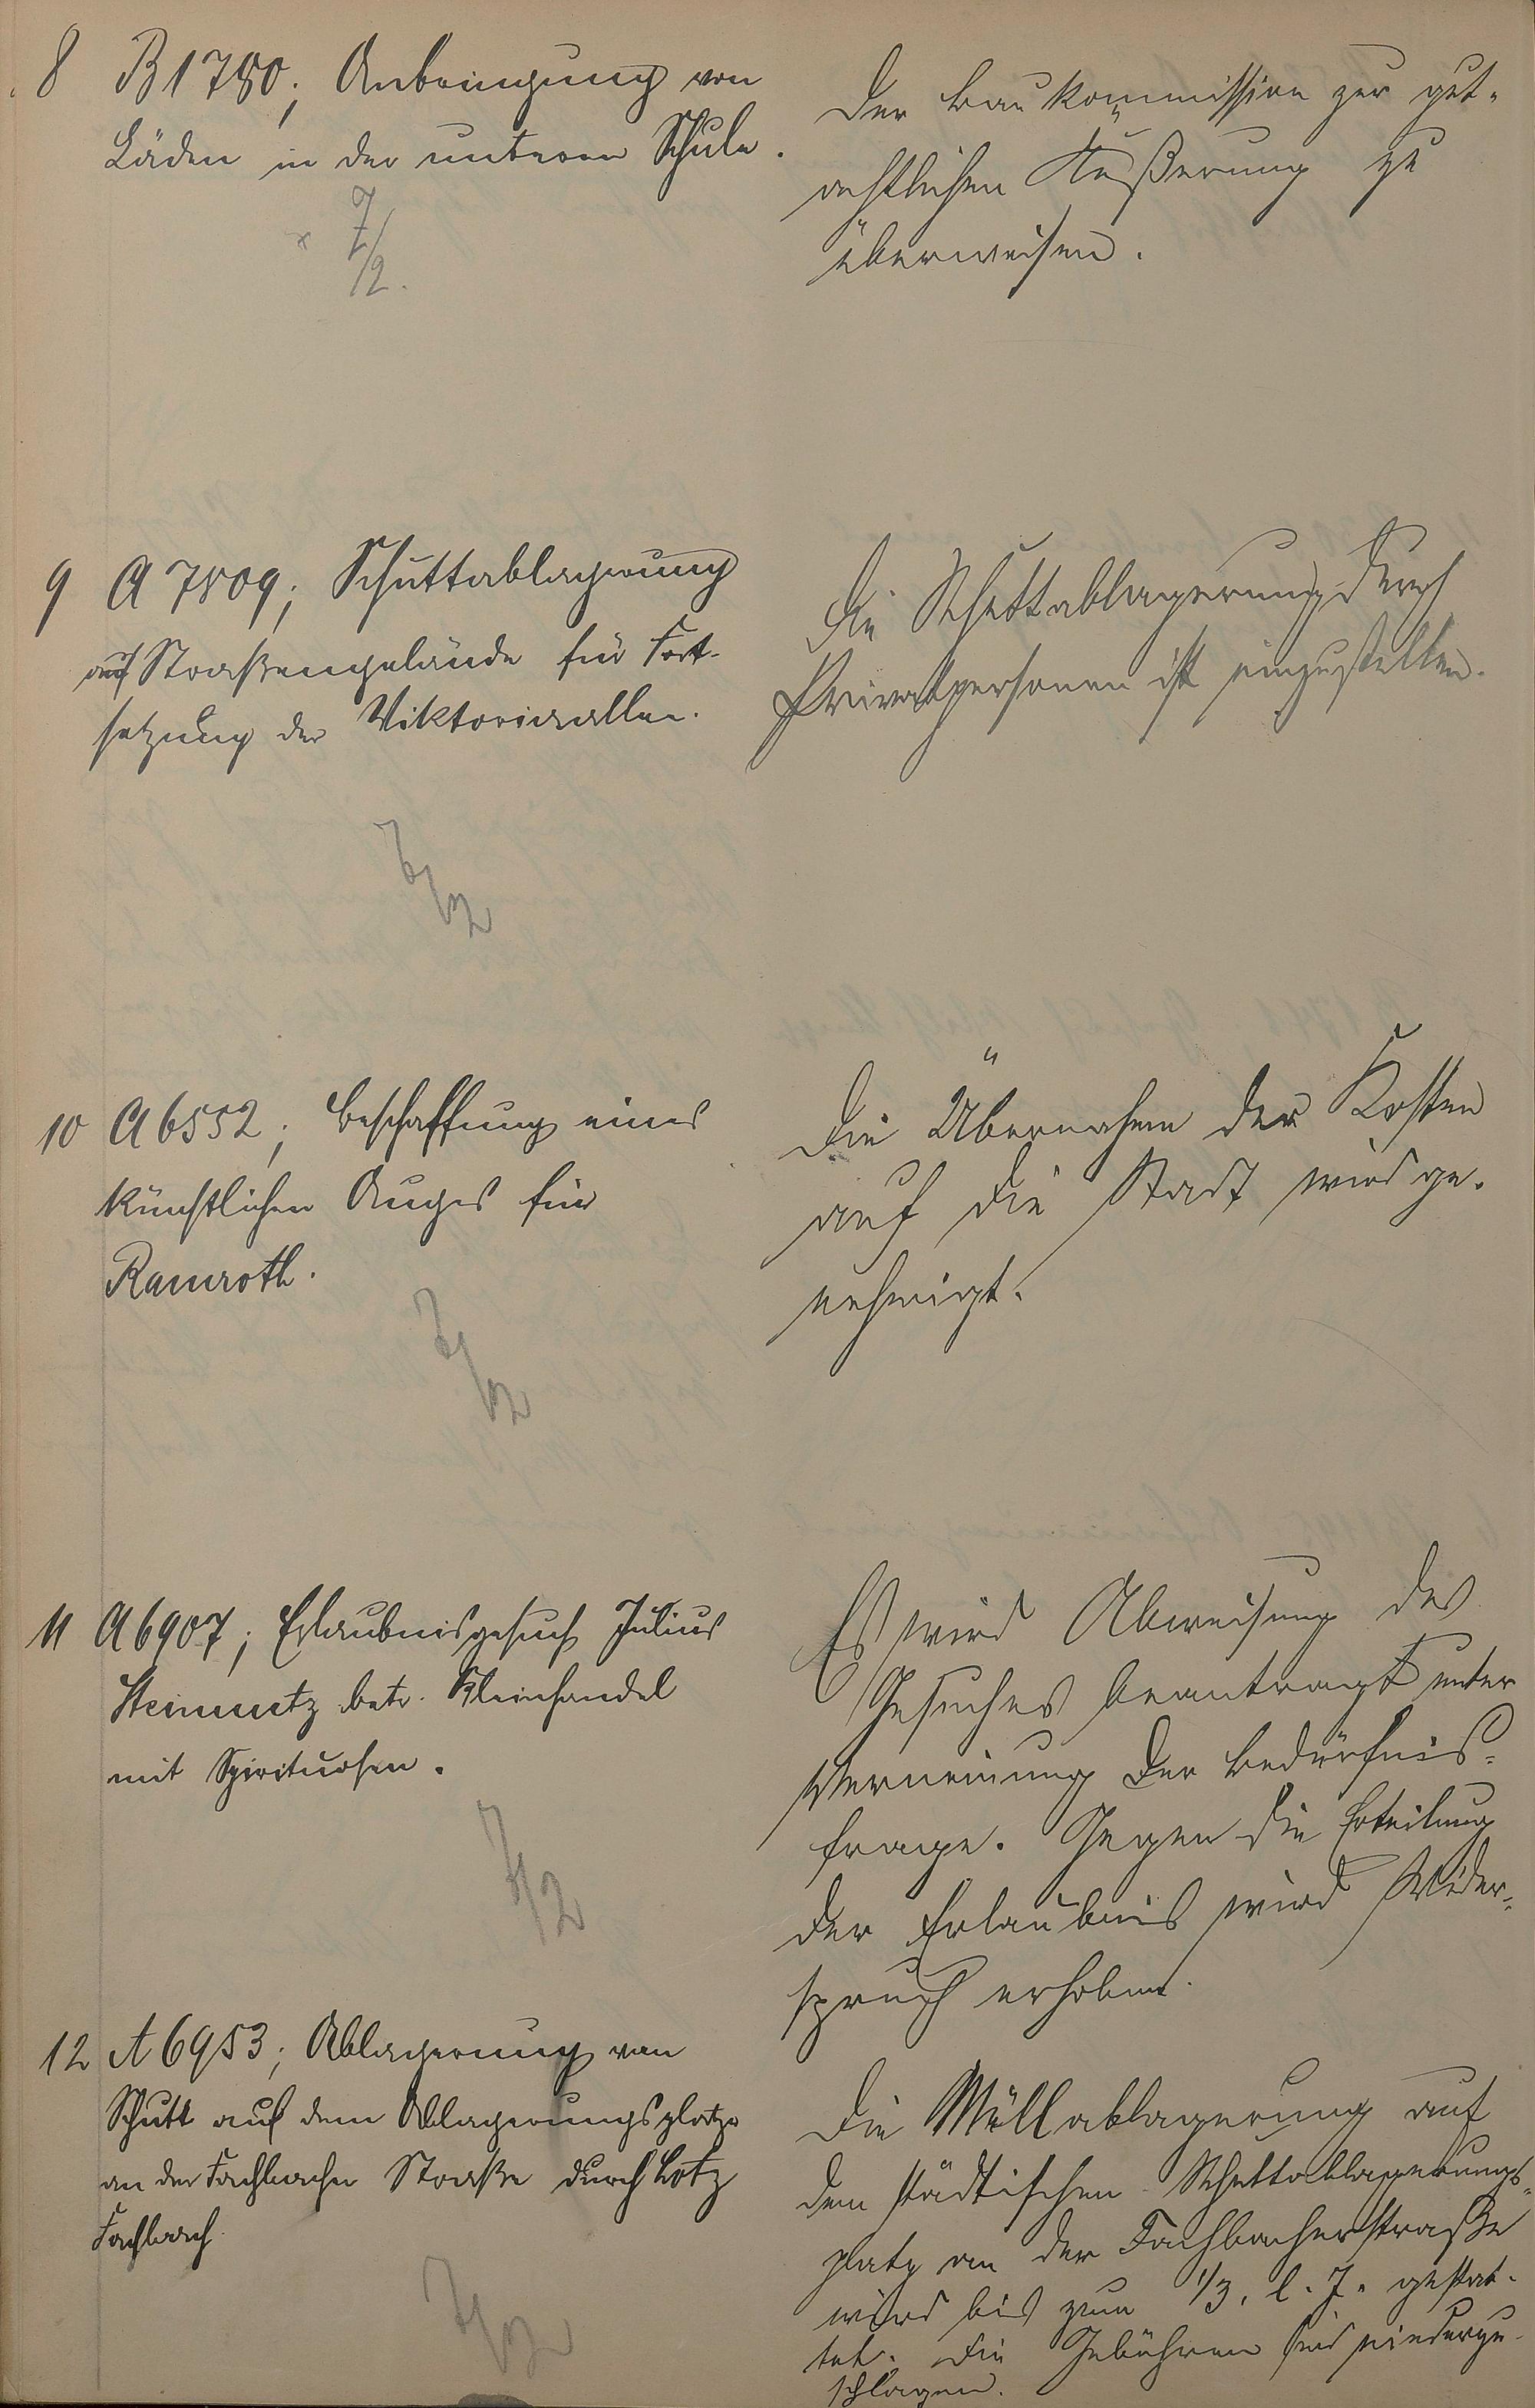 8 B 1780; Anbringung von
Läden in der unteren Schule.
7/2.
Der Baukommission zur gut-
achtlichen Äußerung zu
überweisen.
9 A 7809; Schuttablagerung
auf Straßengelände für Fort-
setzung der Viktoriaallee.
7/2
Die Schuttablagerung durch
Privatpersonen ist einzustellen.
10 A 6552; Beschaffung eines
künstlichen Auges für
Ramroth.
7/2
Die Übernahme der Kosten
auf die Stadt wird ge-
nehmigt.
11 A 6907; Erlaubnisgesuch Julius
Steinmetz betr. Kleinhandel
mit Spirituosen.
7/2
Es wird Abweisung des
Gesuches beantragt unter
Verneinung der Bedürfnis-
frage. Gegen die Erteilung
der Erlaubnis wird Wider-
spruch erhoben.
12 A 6953; Ablagerung von
Schutt auf dem Ablagerungsplatze
an der Fachbacher Straße durch Lotz
Fachbach
7/2
Die Müllablagerung auf
dem städtischen Schuttablagerungs-
platz an der Fachbacherstraße
wird bis zum 1/3. l. J. gestat-
tet. Die Gebühren sind niederzu-
schlagen.